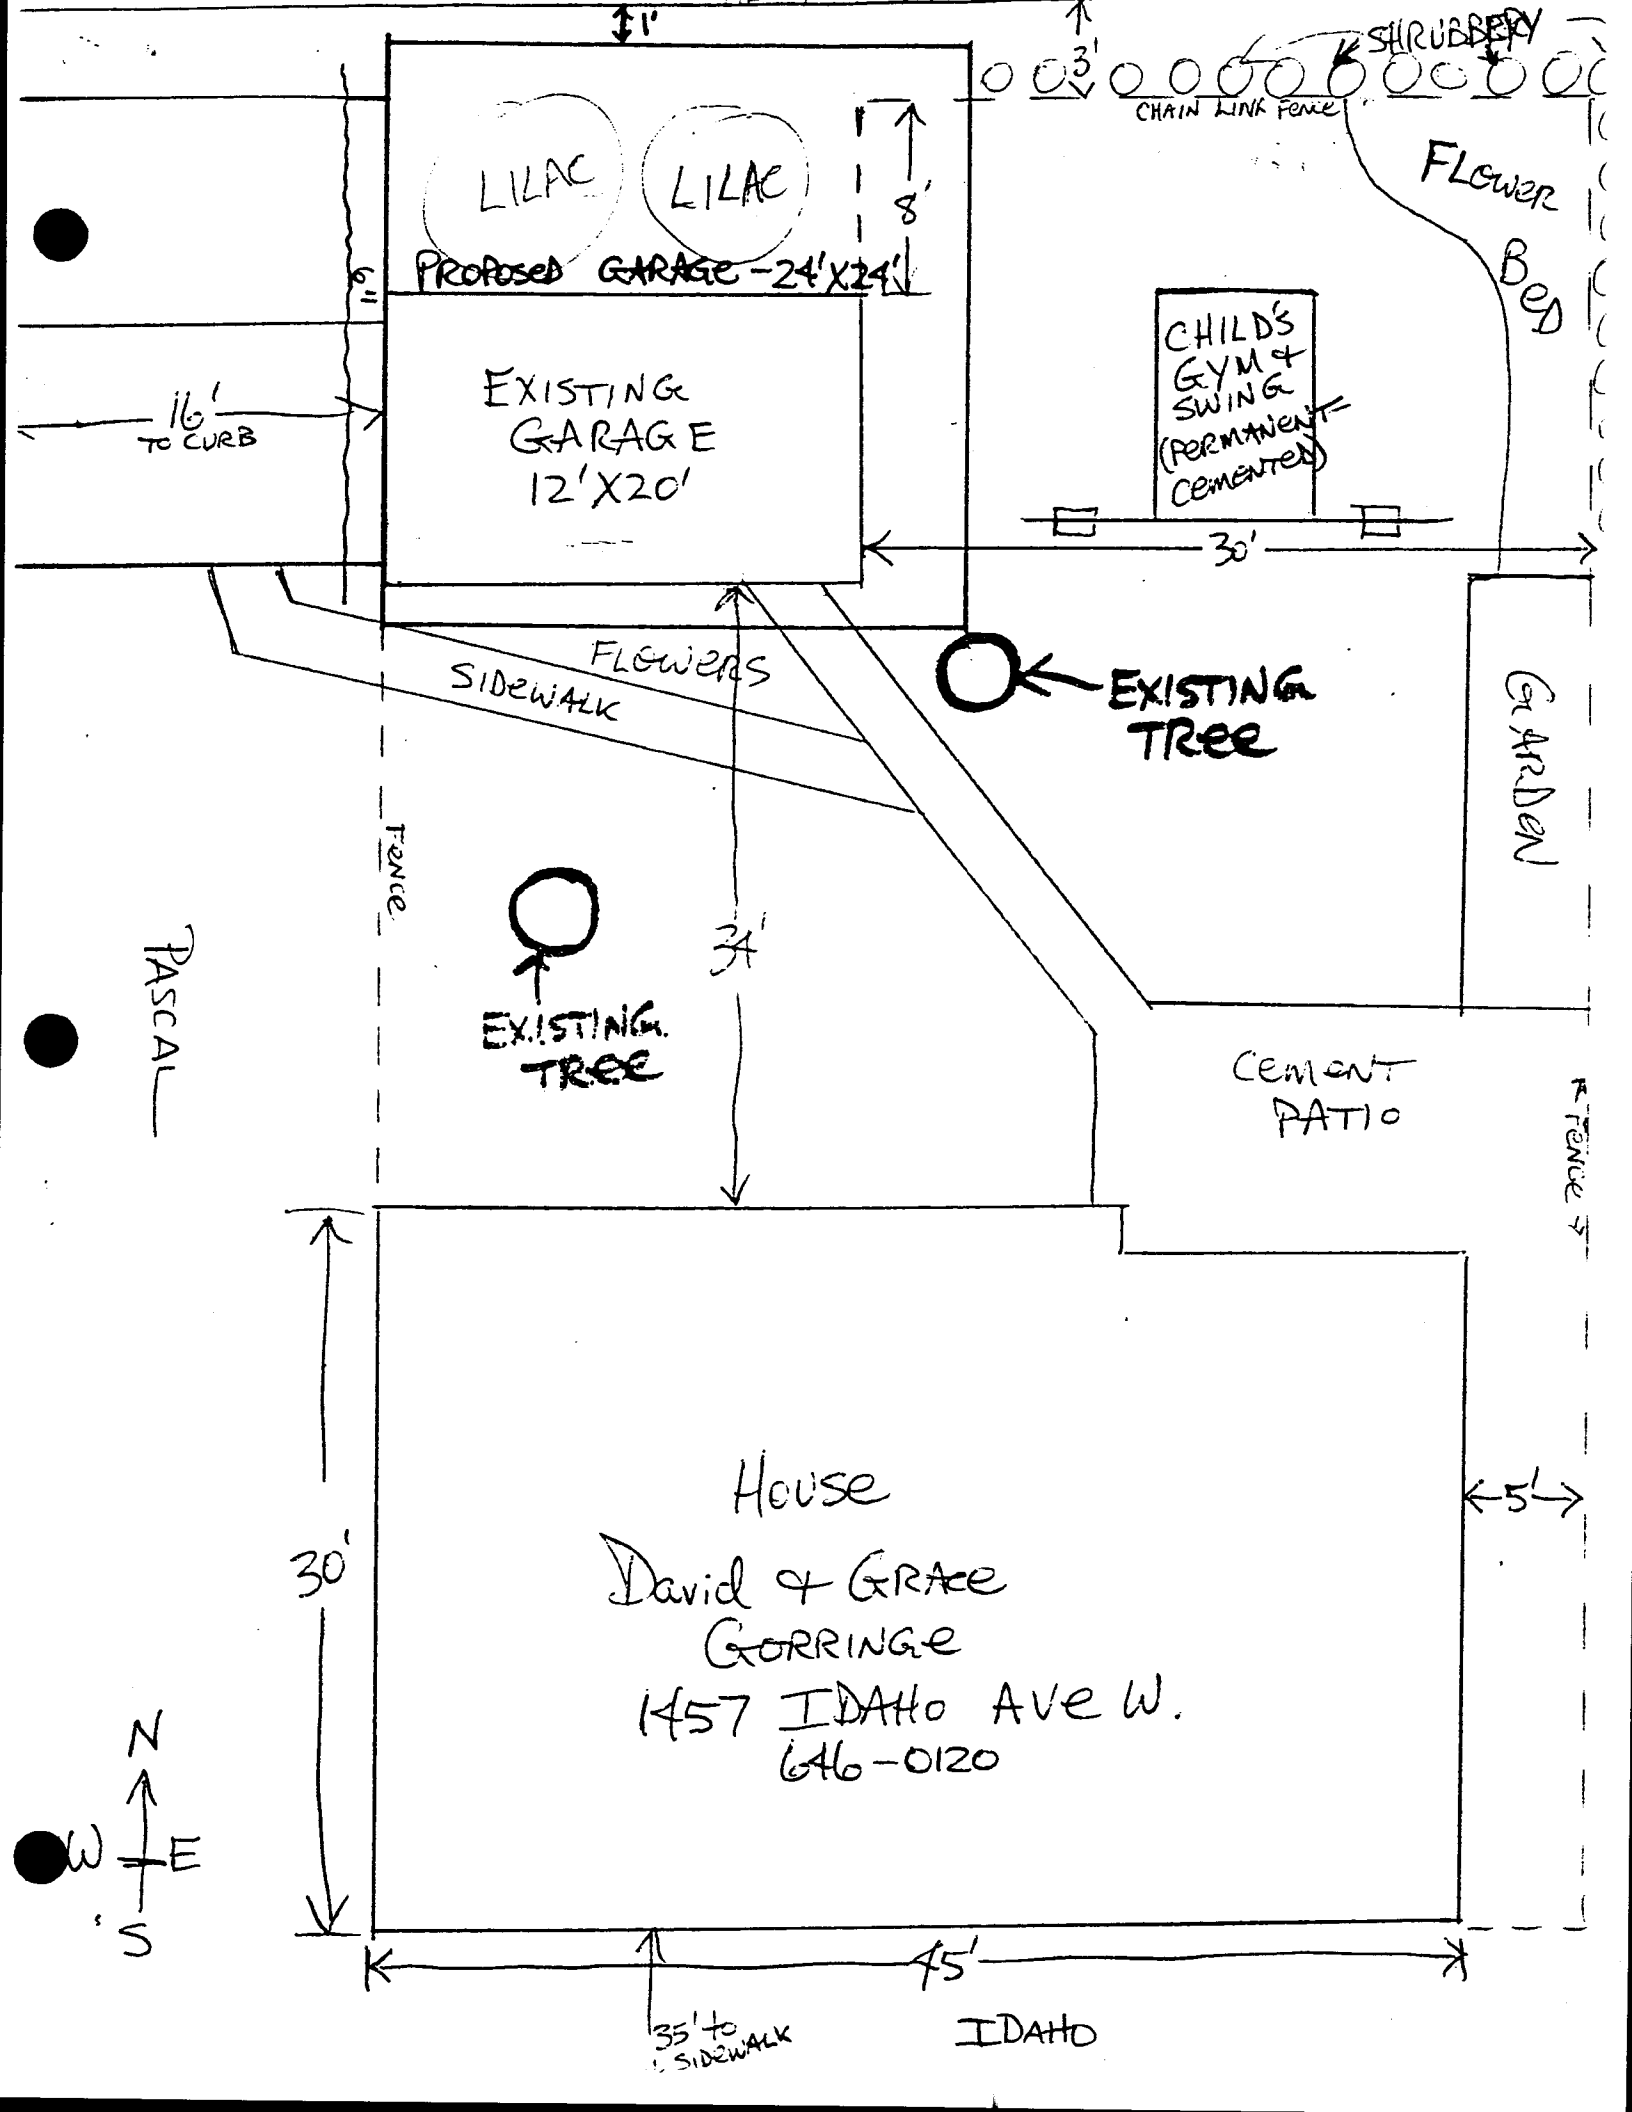 1'
3'
SHRUBBERY
CHAIN LINK FENCE
FLOWER
BED
LILAC
LILAC
8'
PROPOSED GARAGE - 24' X 24'
EXISTING
GARAGE
12' X 20'
16'
TO CURB
CHILD'S
GYM &
SWING
(PERMANENT-
CEMENTED)
30'
FLOWERS
SIDEWALK
EXISTING
TREE
GARDEN
FENCE
34'
PASCAL
EXISTING
TREE
CEMENT
PATIO
FENCE
30'
House
David & GRACE
GORRINGE
1457 IDAHO AVE W.
646-0120
5'
N
W E
S
45'
35' to
SIDEWALK
IDAHO